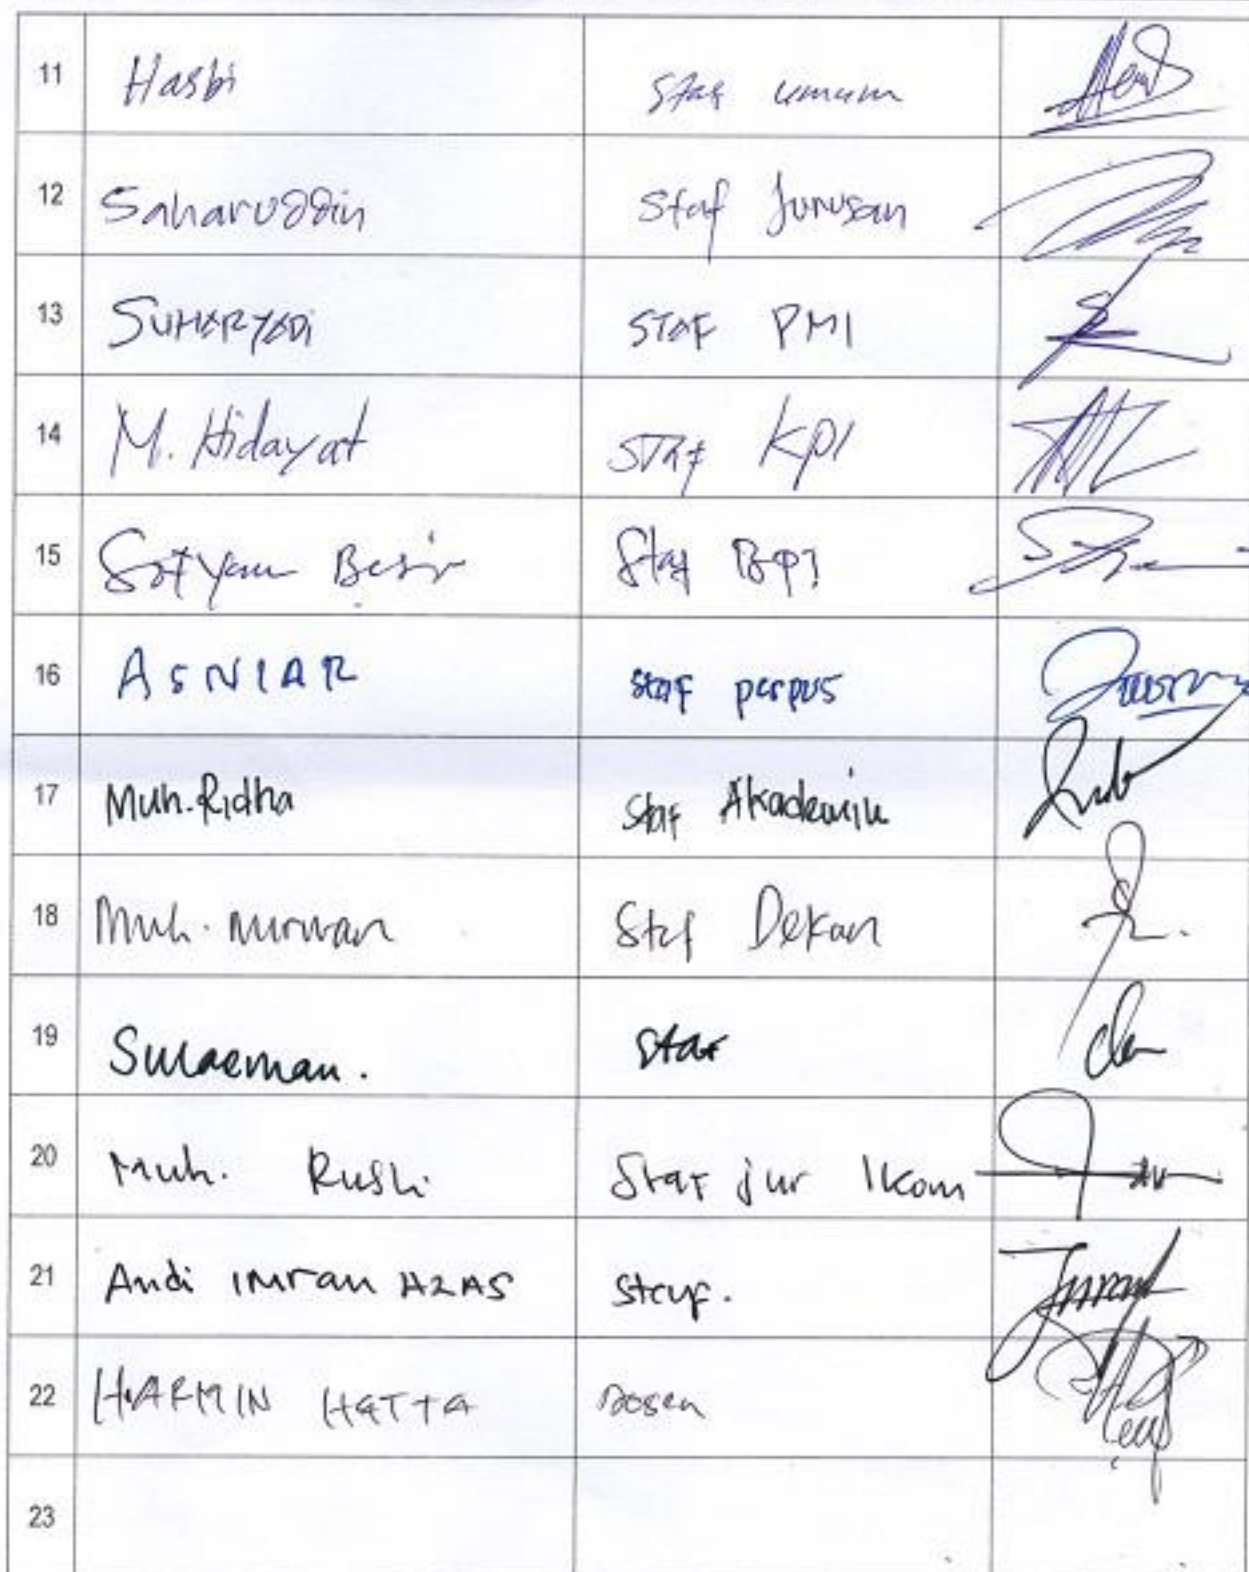 11 Hasbi staf umum
12 Saharuddin staf Jurusan
13 SUHARYADi STAF PMI
14 M. Hidayat STAF KPI
15 Besir Staf
16 ASNIAR staf perpus
17 Muh. Ridha Staf Akademik
18 Muh. Nurwan Staf Dekan
19 Sulaeman. staf
20 Muh. Rusli Staf jur Ikom
21 Andi IMran AZAS staf.
22 HARMIN HATTA Dosen
23